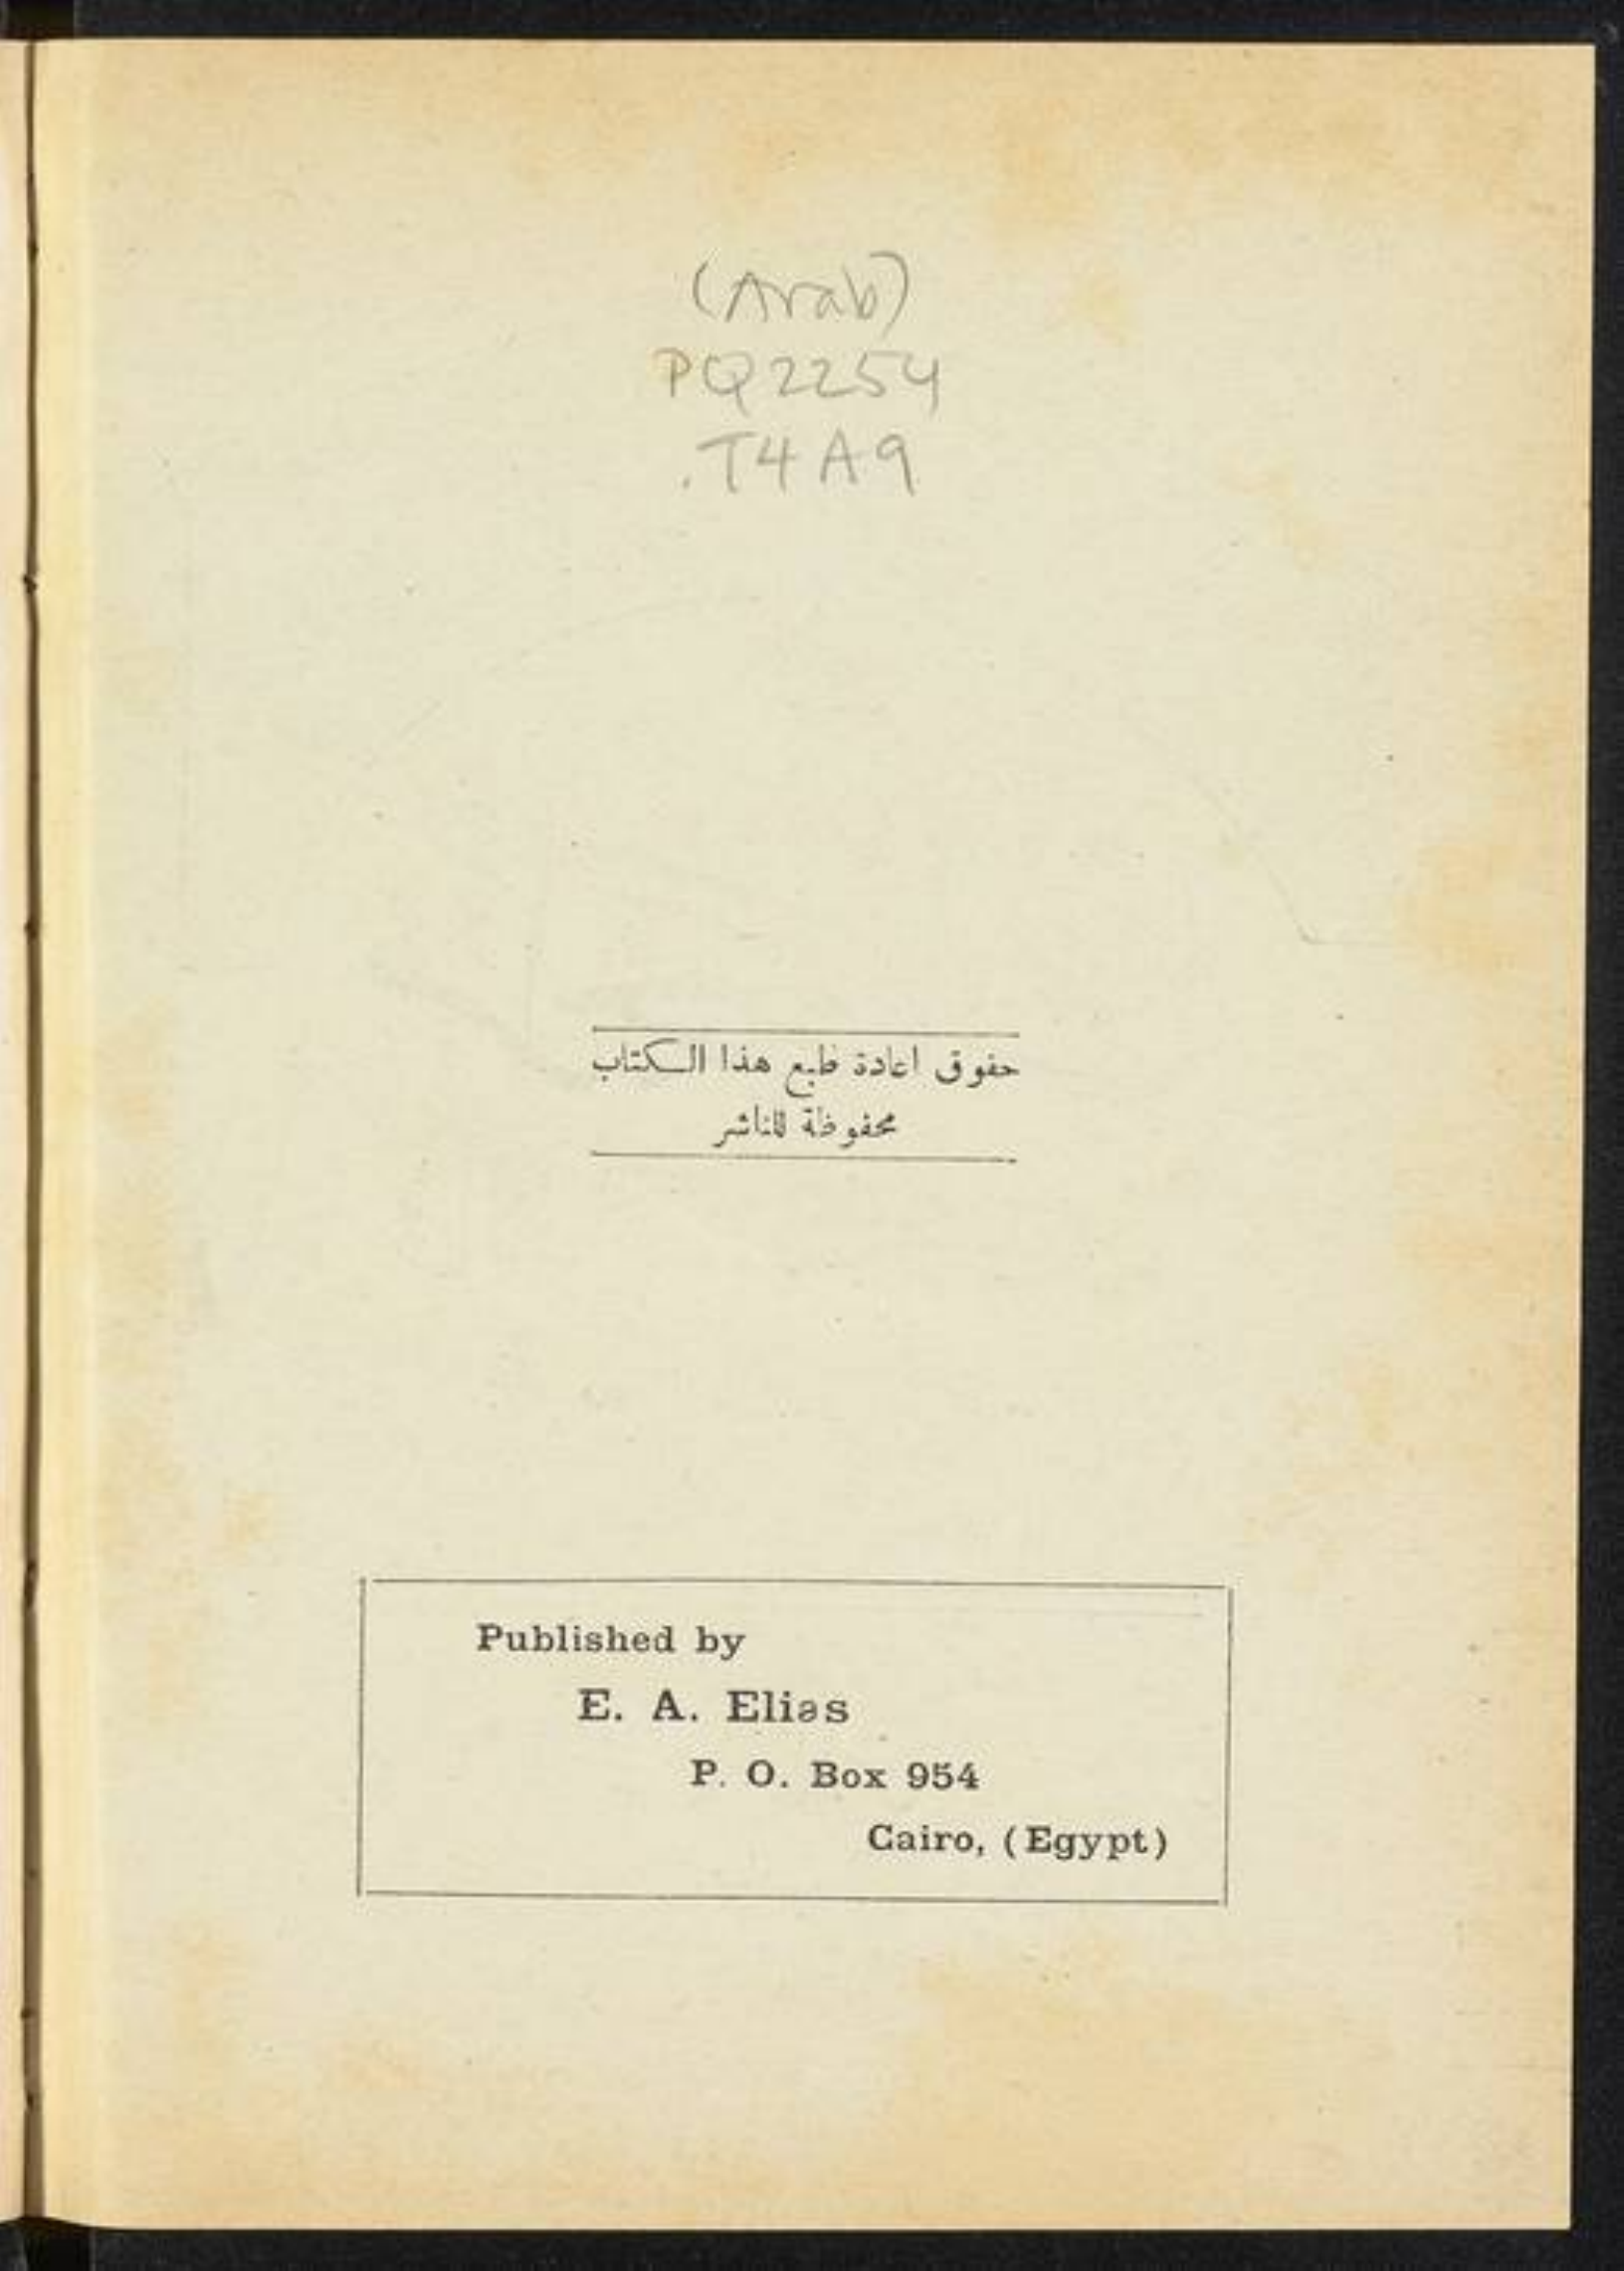 (Arab)
PQ2254
.T4A9
حقوق اعادة طبع هذا الكتاب
محفوظة للناشر
Published by
E. A. Elias
P. O. Box 954
Cairo, (Egypt)